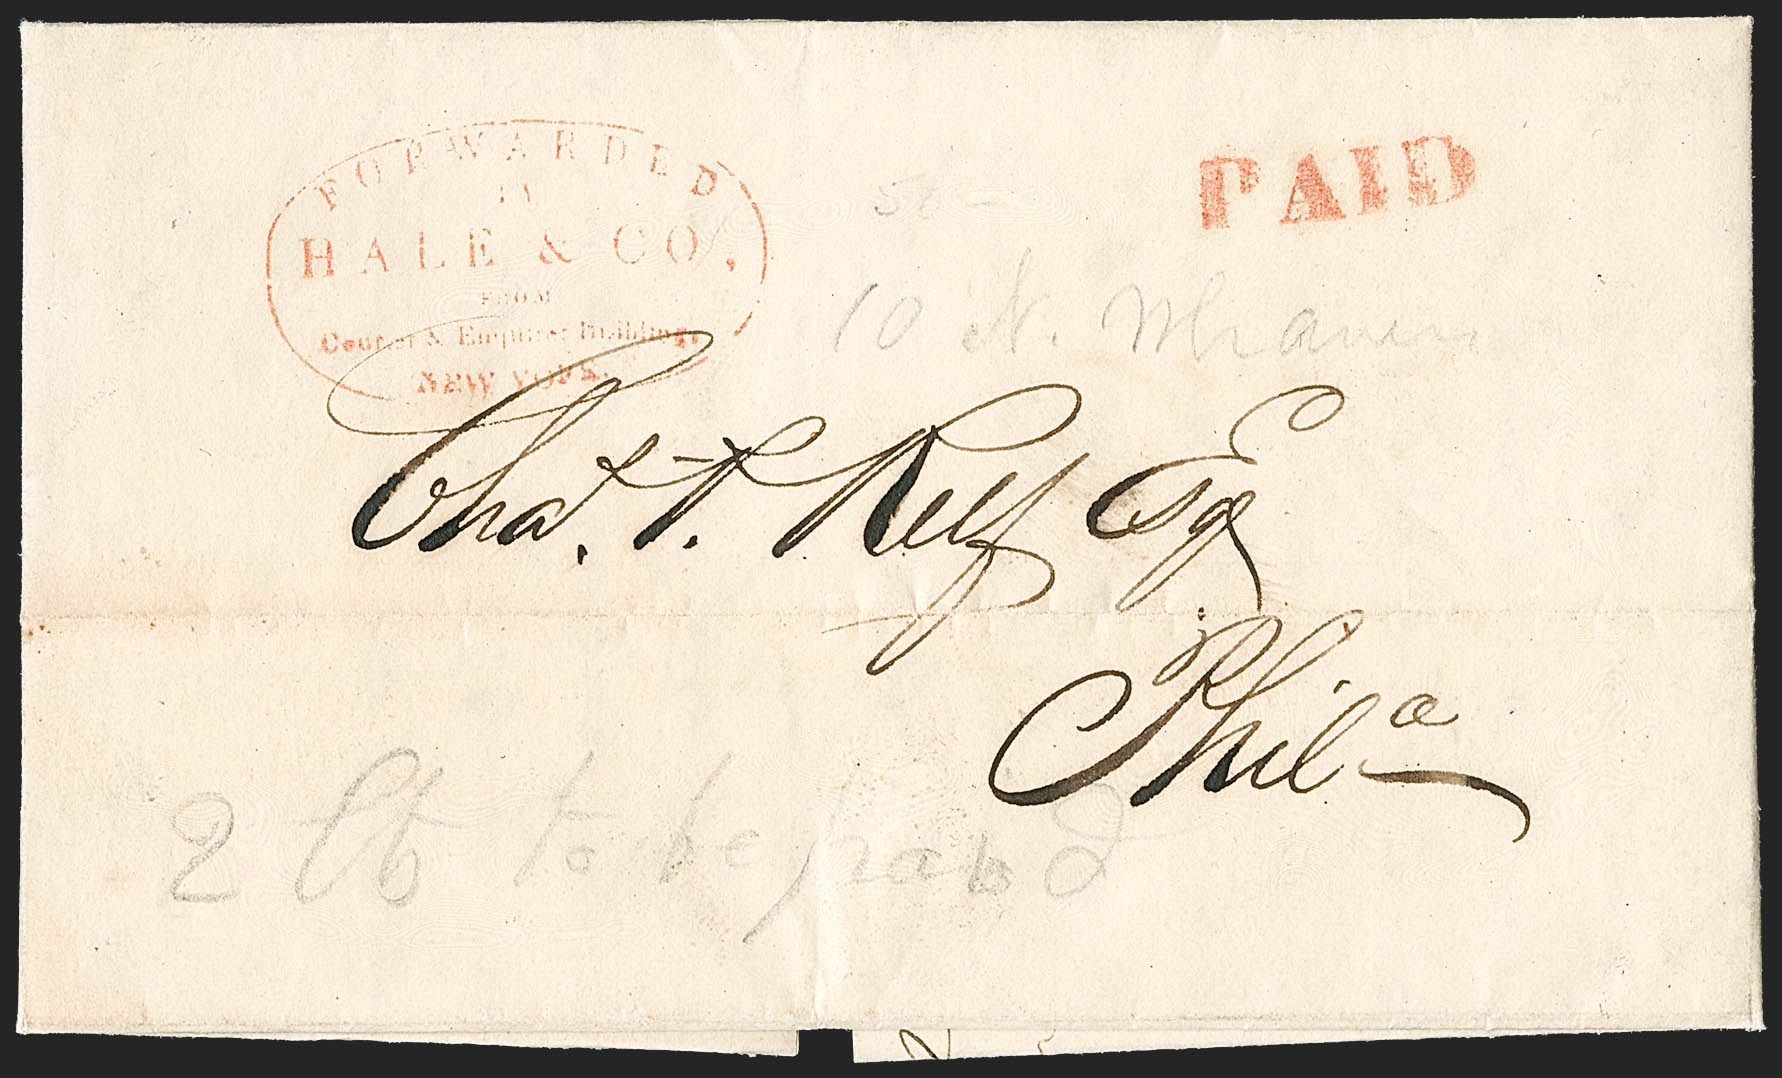 FORWARDED
BY
HALE & CO,
FROM
Courier & Enquirer Building,
NEW YORK.
PAID
50 —
10 N. Wharves
Chas. T. Relf Esq
Phil a
2 Cts to be paid